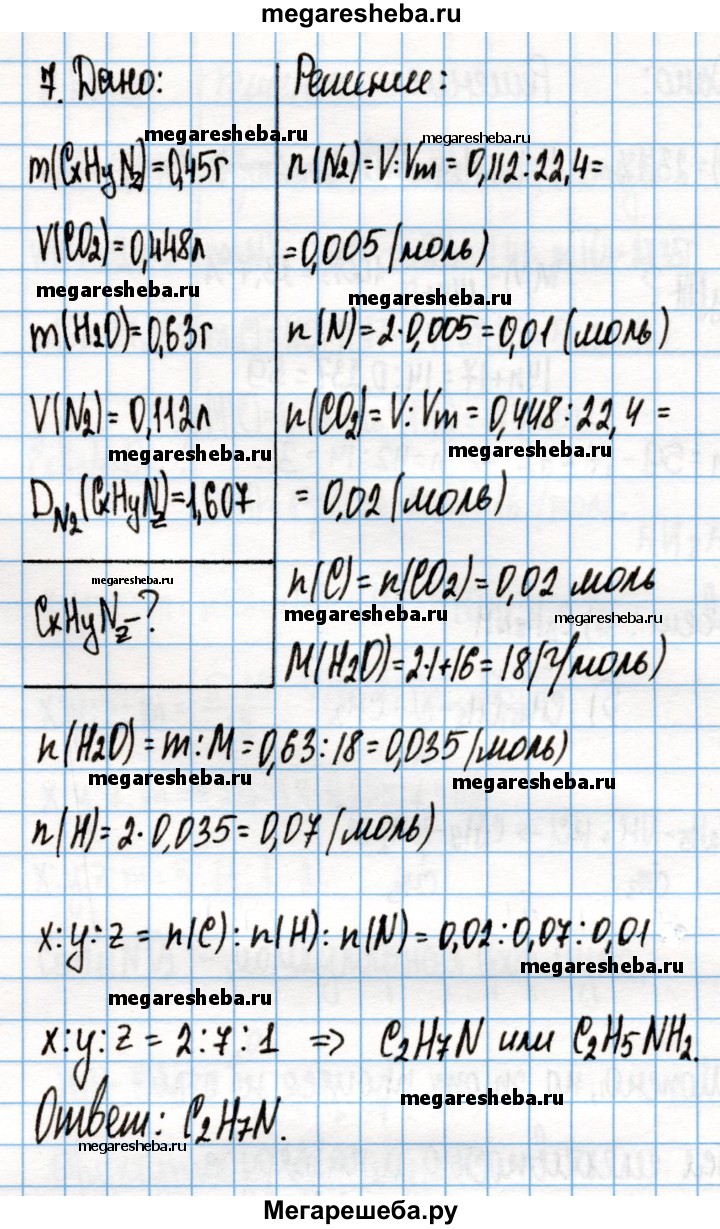 megaresheba.ru
7. Дано:
Решение:
megaresheba.ru
megaresheba.ru
m(CxHyNz)=0,45г
n(N2)=V:Vm=0,112:22,4=
V(CO2)=0,448л
=0,005(моль)
megaresheba.ru
megaresheba.ru
m(H2O)=0,63г
n(N)=2·0,005=0,01(моль)
V(N2)=0,112л
n(CO2)=V:Vm=0,448:22,4=
megaresheba.ru
megaresheba.ru
DN2(CxHyNz)=1,607
=0,02(моль)
megaresheba.ru
n(C)=n(CO2)=0,02 моль
megaresheba.ru
CxHyNz-?
M(H2O)=2·1+16=18(г/моль)
n(H2O)=m:M=0,63:18=0,035(моль)
megaresheba.ru
megaresheba.ru
n(H)=2·0,035=0,07(моль)
x:y:z=n(C):n(H):n(N)=0,02:0,07:0,01
megaresheba.ru
megaresheba.ru
x:y:z=2:7:1 => C2H7N или C2H5NH2.
megaresheba.ru
Ответ: C2H7N.
megaresheba.ru
Мегарешеба.ру